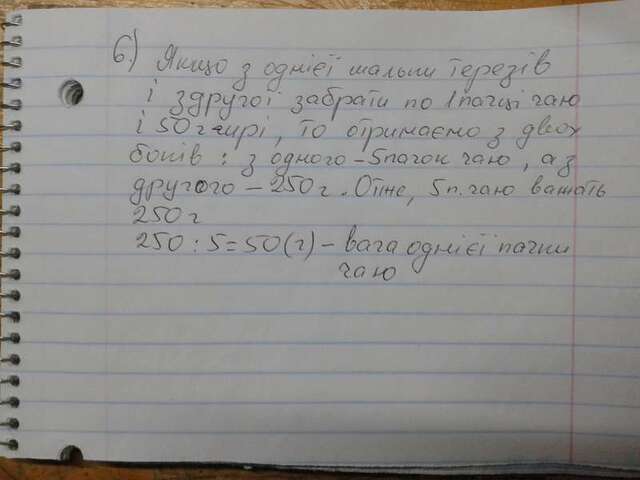 6) Якщо з однієї шальки терезів
і з другої забрати по 1 пачці чаю
і 50 г гирі, то отримаємо з двох
боків: з одного - 5 пачок чаю, а з
другого - 250 г. Отже, 5 п. чаю важать
250 г
250 : 5 = 50 (г) - вага однієї пачки
чаю